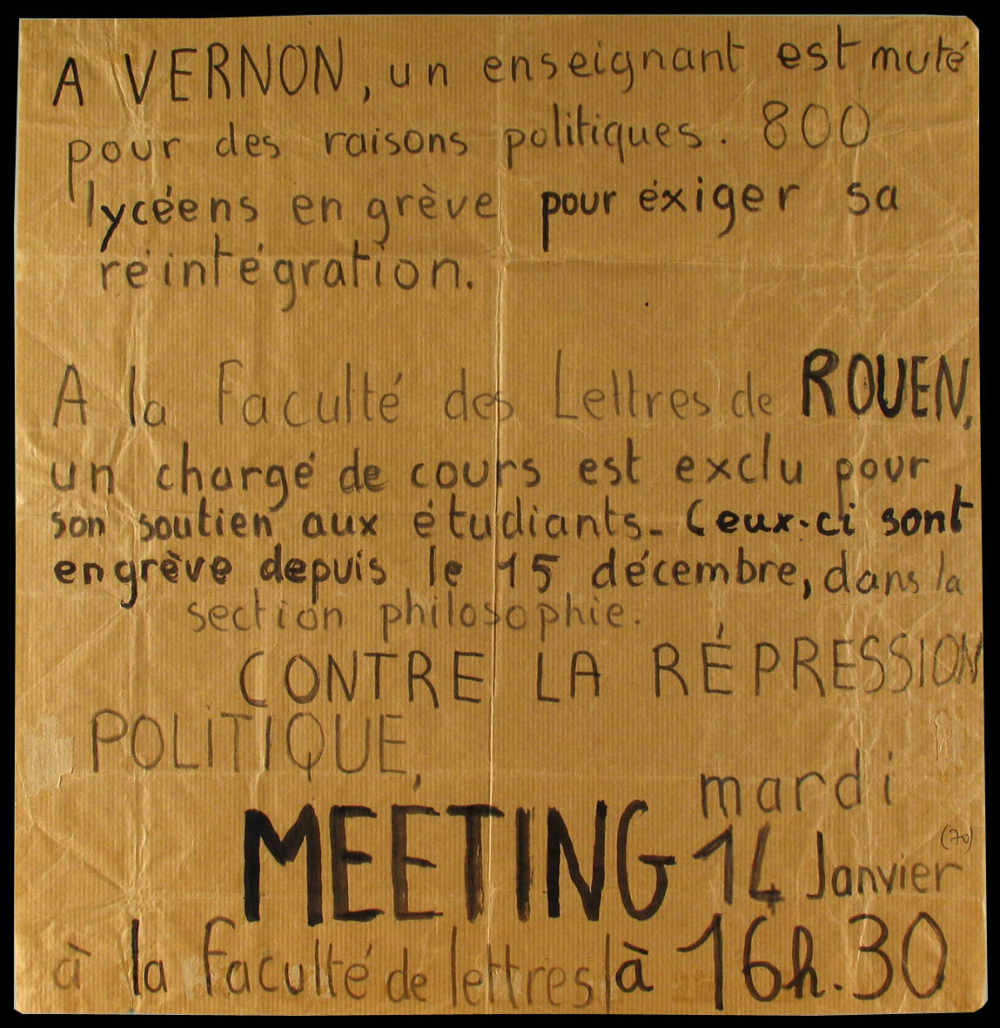 A VERNON, un enseignant est muté
pour des raisons politiques. 800
lycéens en grève pour éxiger sa
réintégration.
A la Faculté des Lettres de ROUEN,
un chargé de cours est exclu pour
son soutien aux étudiants. Ceux-ci sont
en grève depuis le 15 décembre, dans la
section philosophie.
CONTRE LA RÉPRESSION
POLITIQUE,
mardi
MEETING 14 Janvier (70)
à la Faculté de lettres à 16h.30